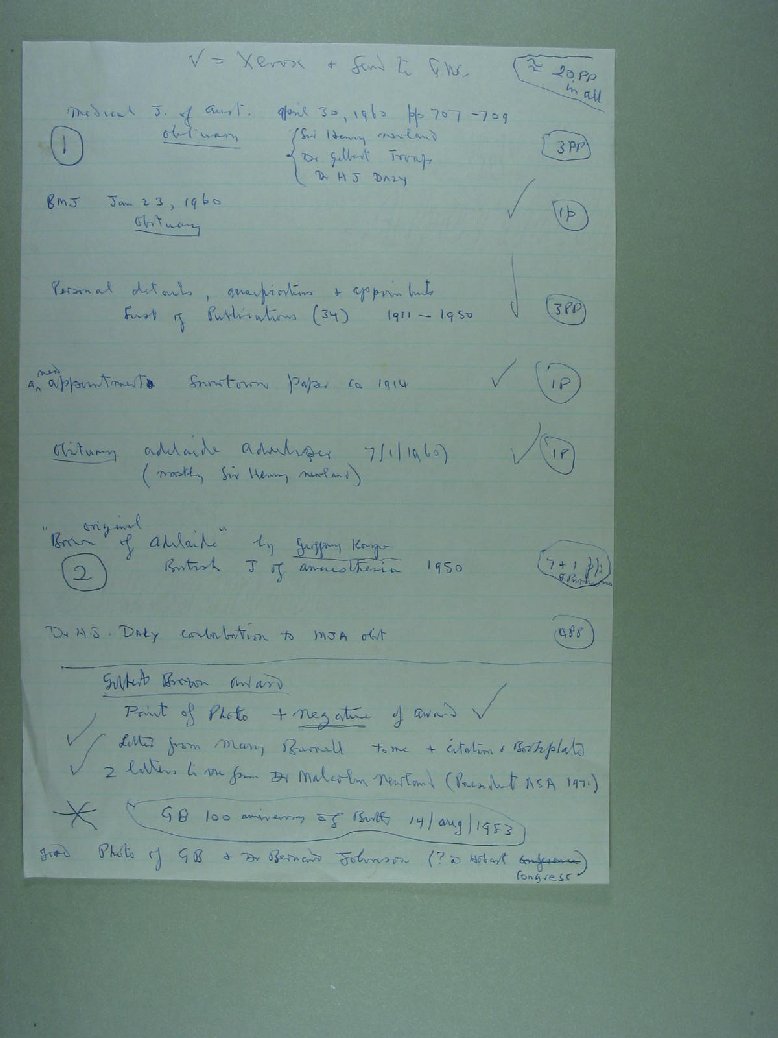 ✓ = Xerox + Send to G.W.
≈ 20PP
in all
Medical J. of Aust. April 30, 1960 pp 707-709
① Obituary { Sir Henry Newland
Dr Gilbert Troup
Dr H J Daly
3PP
BMJ Jan 23, 1960 ✓ 1P
Obituary
Personal details, qualifications + appointments ✓
List of Publications (34) 1911 - 1950 3PP
new
an appointment Snowtown Paper ca 1914 ✓ 1P
Obituary Adelaide Advertiser 7/1/1960) ✓ 1P
(mostly Sir Henry Newland)
original
"Brown of Adelaide" by Geoffrey Kaye
② British J of anaesthesia 1950 7+1 pp
Dr H.S. Daly contribution to MJA obit 4PP
Gilbert Brown award
Print of Photo + negative of award ✓
✓ Letter from Mary Burnell to me + citation + Bookplate
✓ 2 letters to me from Dr Malcolm Newland (President ASA 197.)
GB 100 anniversary of Birth 14/Aug/1983
Photo of GB + Dr Bernard Johnson (? in Hobart conference)
Congress